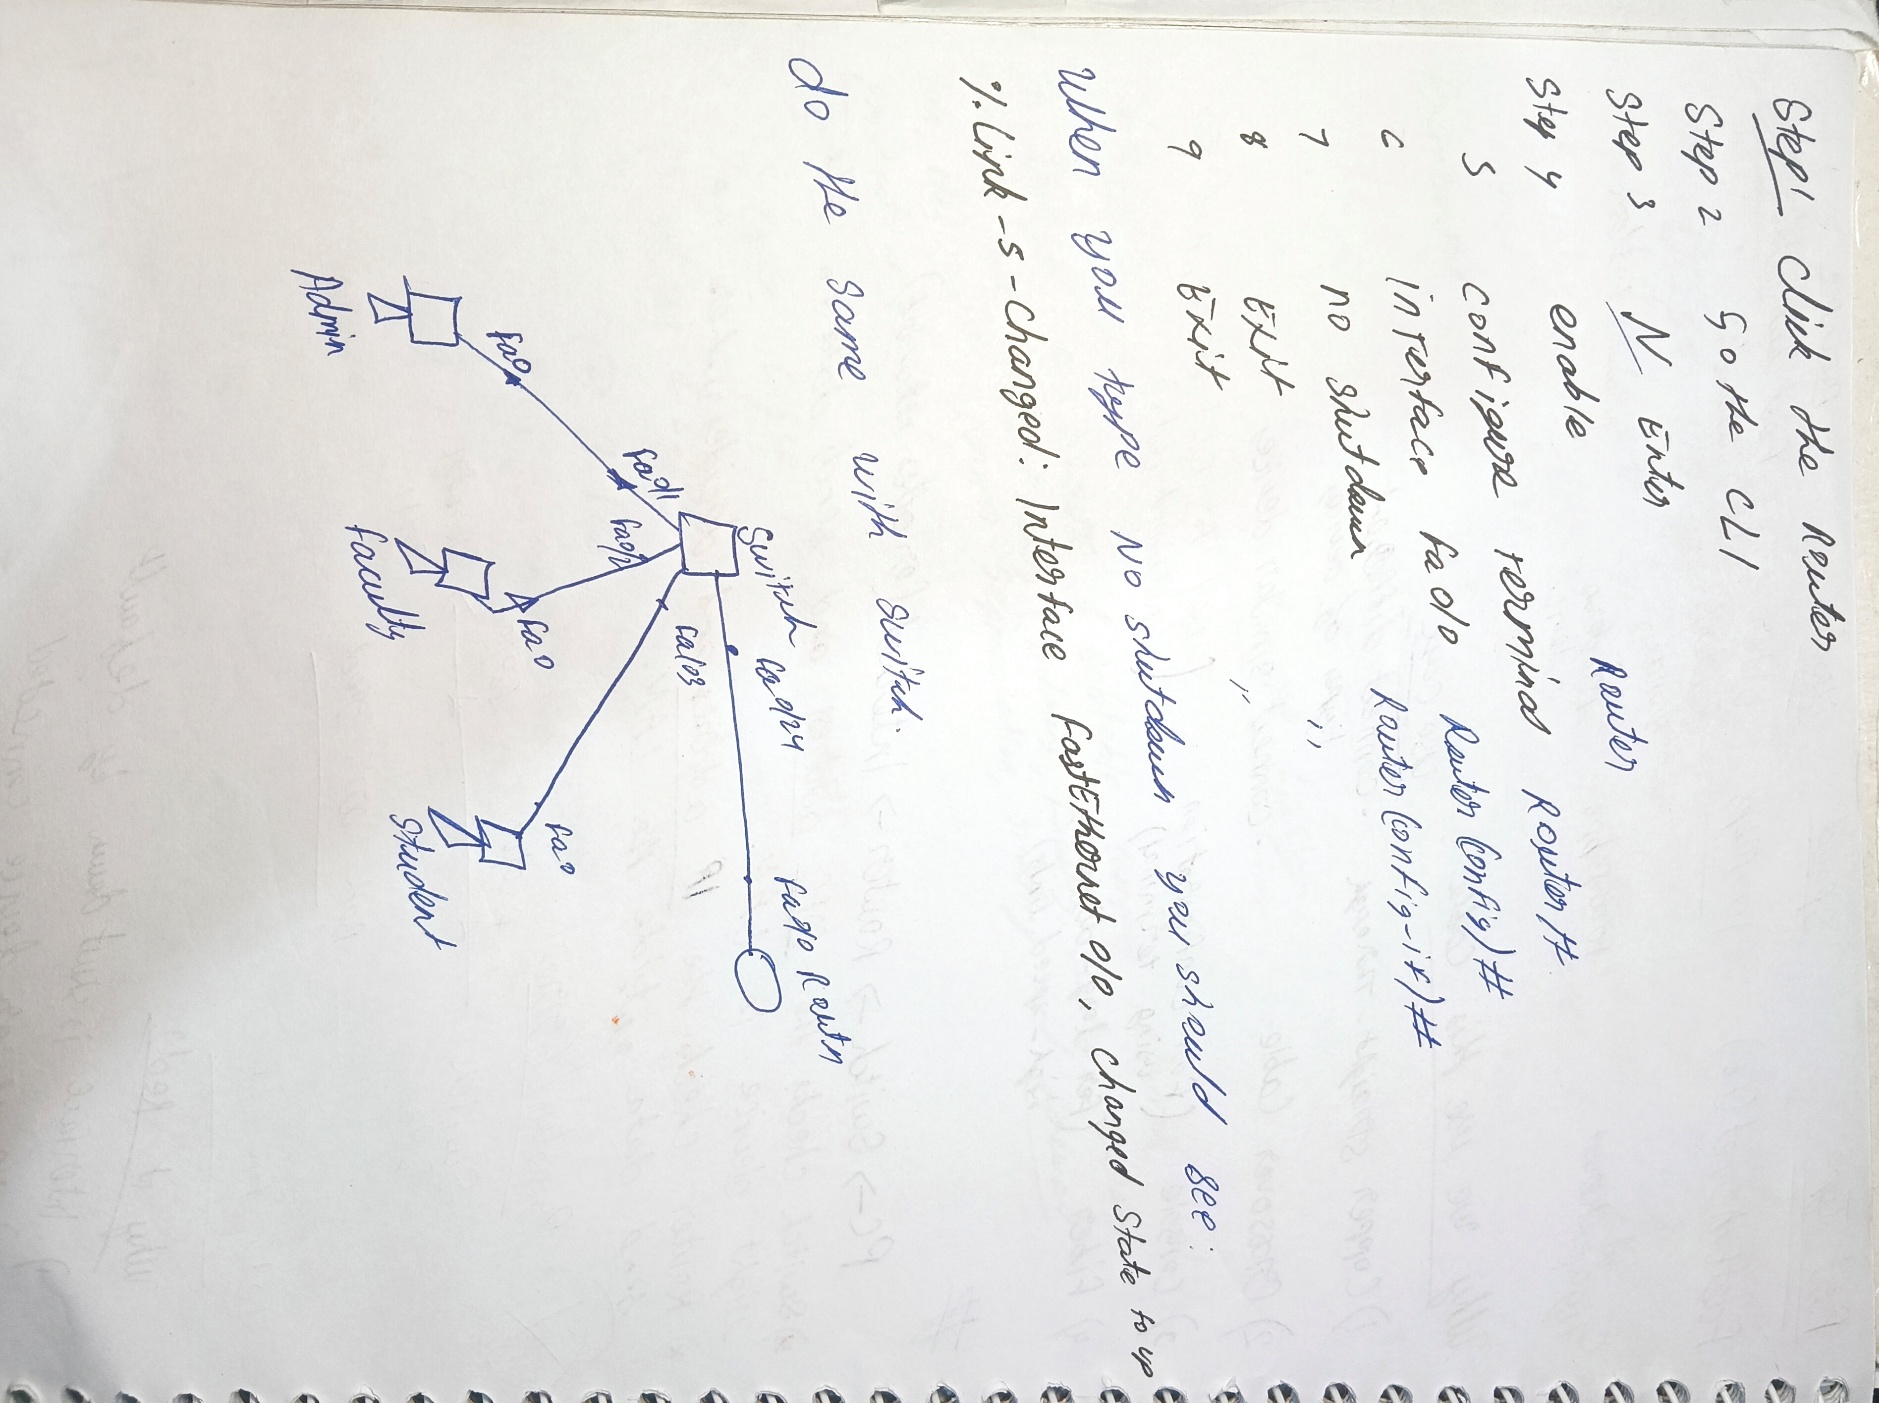 Step 1 Click the Router
Step 2 Go the CLI
Step 3 N Enter
Router
Step 4 enable
5 configure terminal Router#
6 interface fa0/0 Router(config)#
7 no shutdown Router(config-if)#
8 Exit ''
9 Exit ''
When you type No shutdown you should see:
%Link-5-changed: Interface FastEthernet 0/0, changed state to up
do the same with switch.
Switch fa0/24 fa0/0 Router
fa0/1 fa0/2 fa/03
fa0 fa0 fa0
Admin Faculty Student